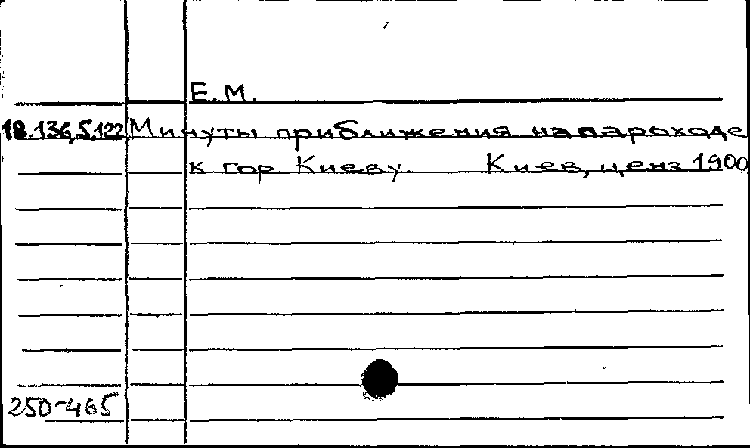 Е.М.
18.136.5.122 Минуты приближения на пароходе
к гор Киеву. Киев, ценз 1900
250-465